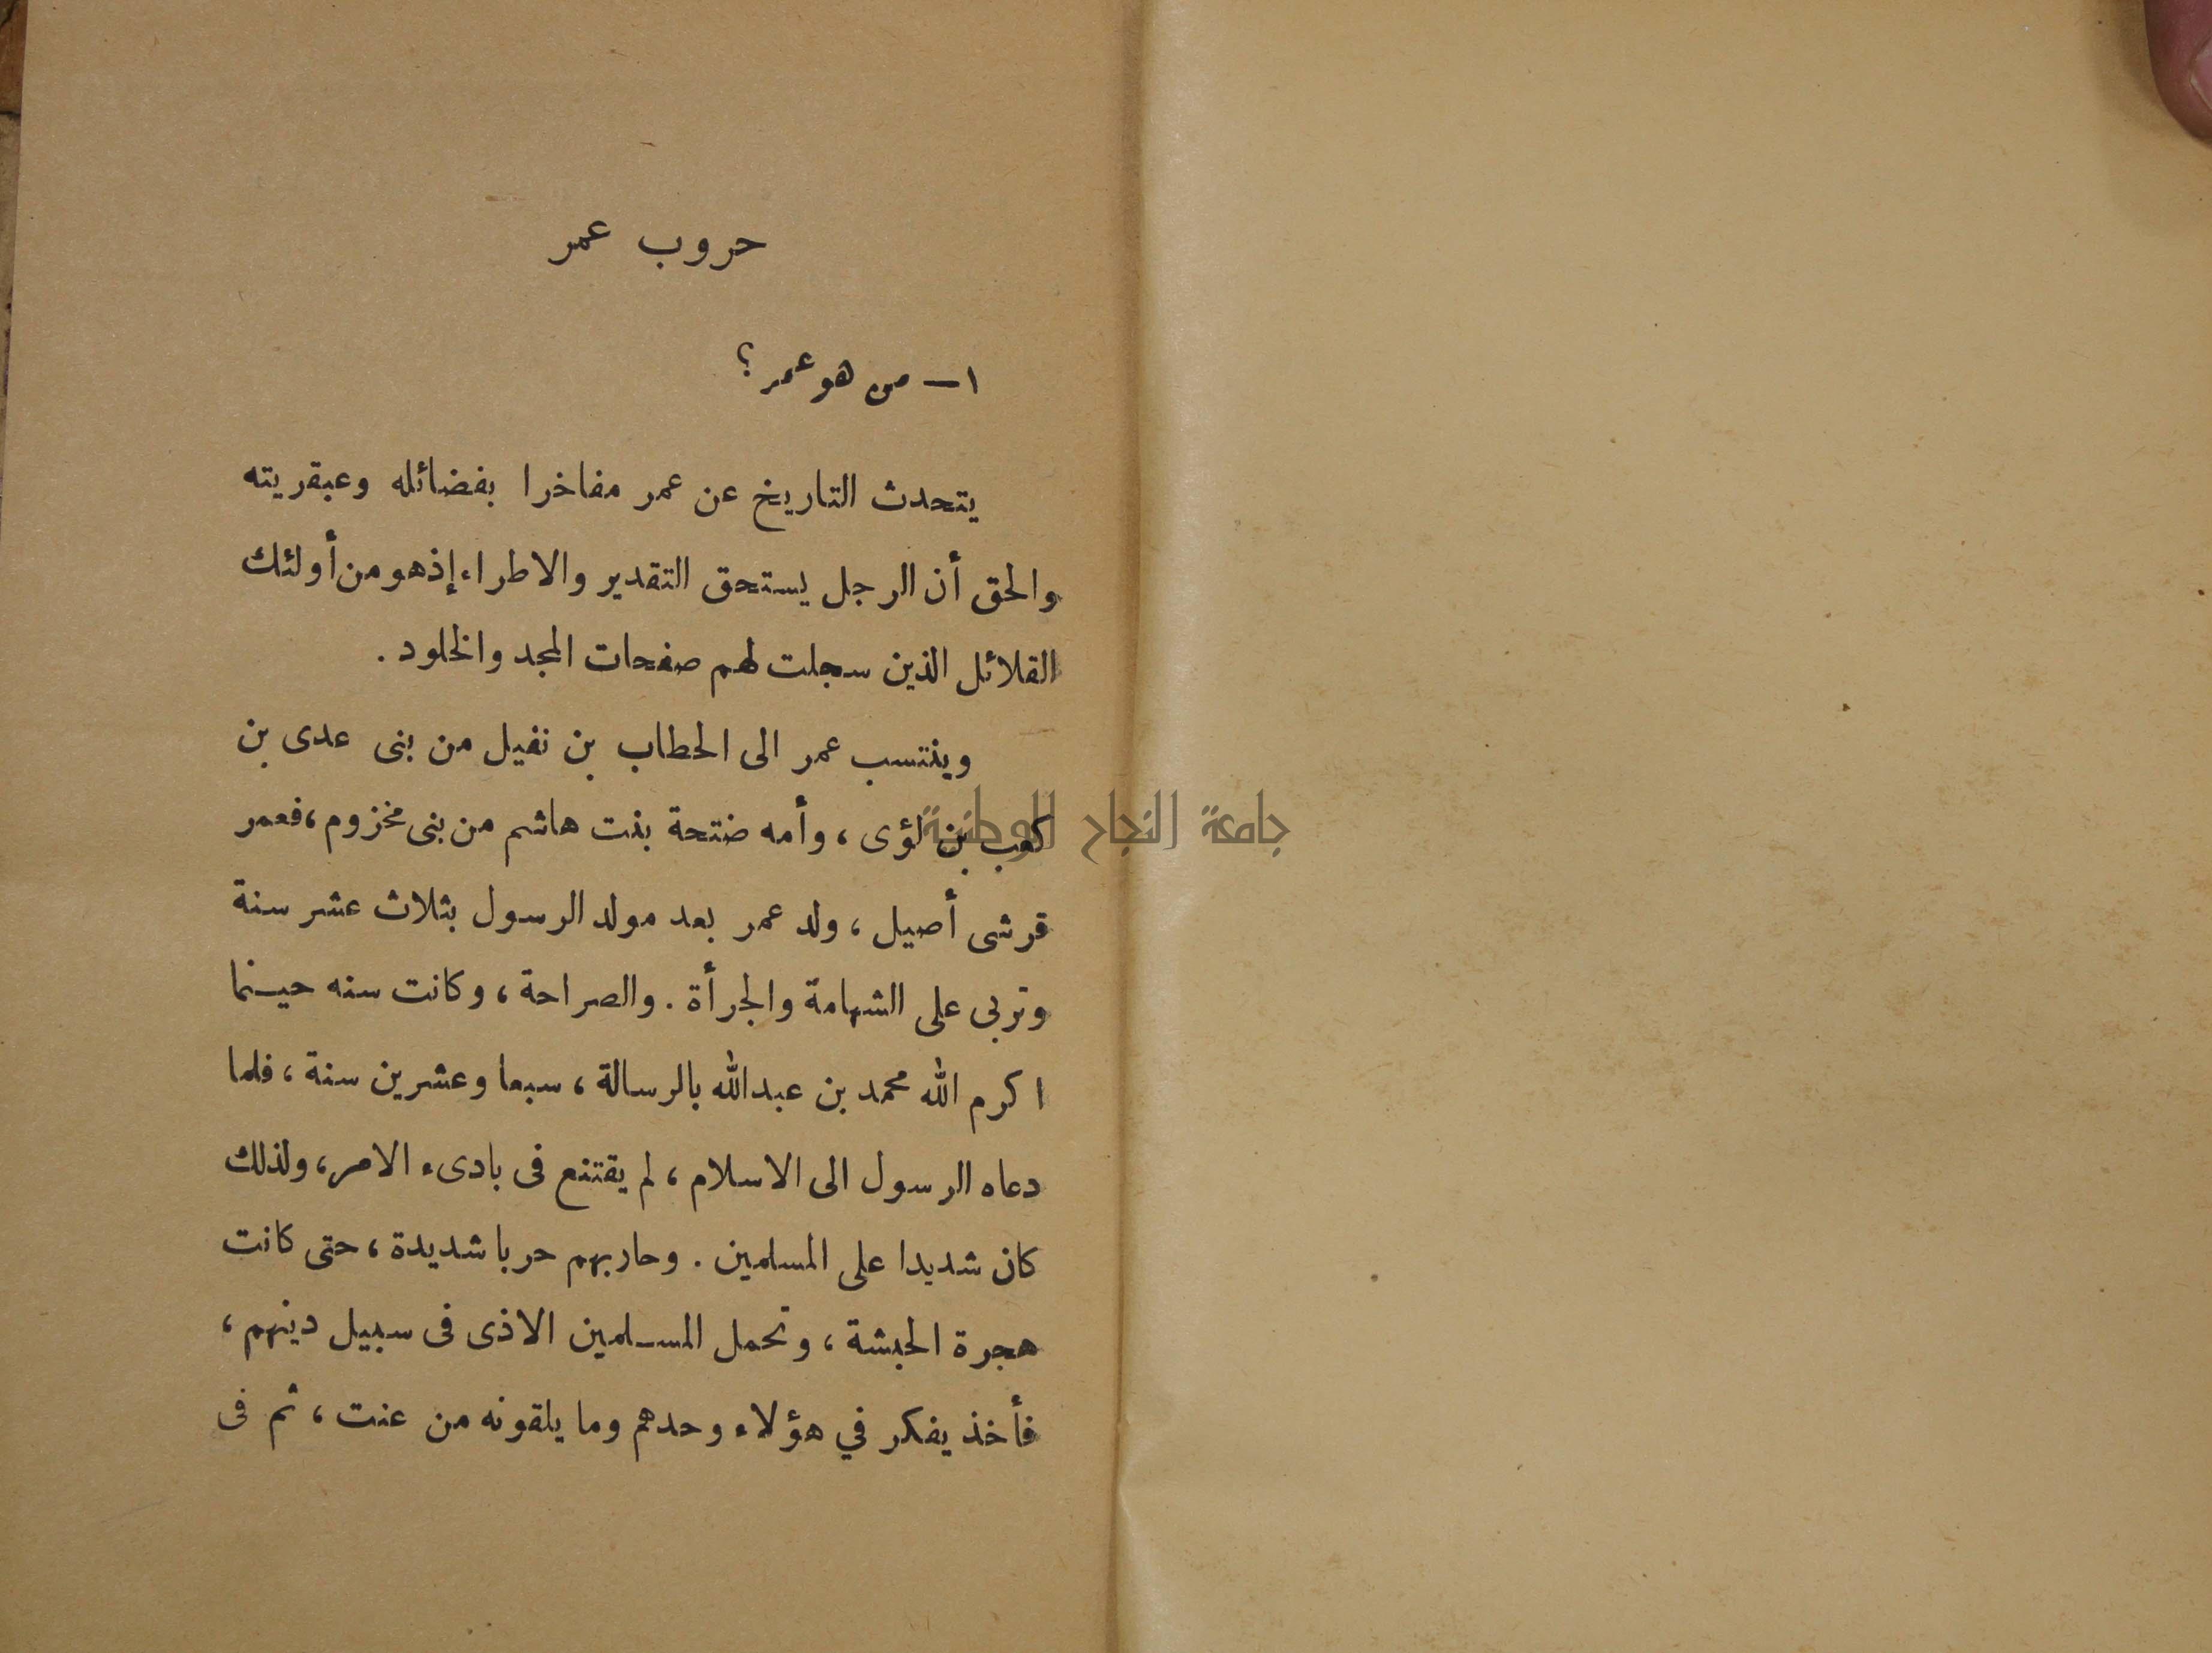 حروب عمر
١ – من هو عمر ؟
يتحدث التاريخ عن عمر مفاخرا بفضائله وعبقريته
والحق أن الرجل يستحق التقدير والاطراء إذ هو من أولئك
القلائل الذين سجلت لهم صفحات المجد والخلود .
وينتسب عمر الى الحطاب بن نفيل من بنى عدى بن
كعب بن لؤى ، وأمه ضتحة بنت هاشم من بنى مخزوم ، فعمر
قرشى أصيل ، ولد عمر بعد مولد الرسول بثلاث عشر سنة
وتربى على الشهامة والجرأة . والصراحة ، وكانت سنه حينما
اكرم الله محمد بن عبدالله بالرسالة ، سبعا وعشرين سنة ، فلما
دعاه الرسول الى الاسلام ، لم يقتنع فى بادىء الامر ، ولذلك
كان شديدا على المسلمين . وحاربهم حربا شديدة ، حتى كانت
هجرة الحبشة ، وتحمل المسلمين الاذى فى سبيل دينهم ،
فأخذ يفكر في هؤلاء وحدهم وما يلقونه من عنت ، ثم فى
جامعة النجاح الوطنية